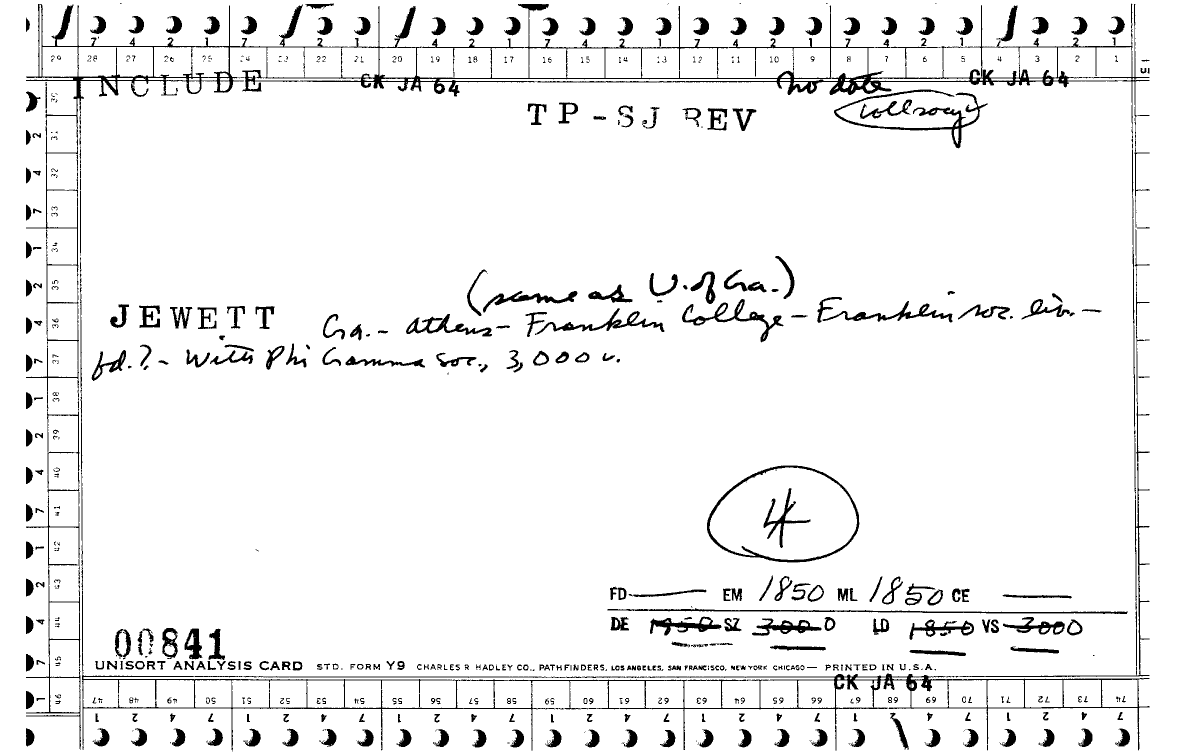 7 4 2 1 7 4 2 1 7 4 2 1 7 4 2 1 7 4 2 1 7 4 2 1 7 4 2 1
29 28 27 26 25 24 23 22 21 20 19 18 17 16 15 14 13 12 11 10 9 8 7 6 5 4 3 2 1
INCLUDE CK JA 64 no date CK JA 64
TP-SJ REV collsocy
(same as U. of Ga.)
JEWETT Ga. - Athens - Franklin College - Franklin soc. lib. -
fd.? - With Phi Gamma soc., 3,000 v.
4
FD EM 1850 ML 1850 CE
DE 1850 SZ 3000 LD 1850 VS 3000
00841
UNISORT ANALYSIS CARD STD. FORM Y9 CHARLES R HADLEY CO., PATHFINDERS, LOS ANGELES, SAN FRANCISCO, NEW YORK CHICAGO — PRINTED IN U.S.A.
CK JA 64
47 48 49 50 51 52 53 54 55 56 57 58 59 60 61 62 63 64 65 66 67 68 69 70 71 72 73 74
1 2 4 7 1 2 4 7 1 2 4 7 1 2 4 7 1 2 4 7 1 2 4 7 1 2 4 7